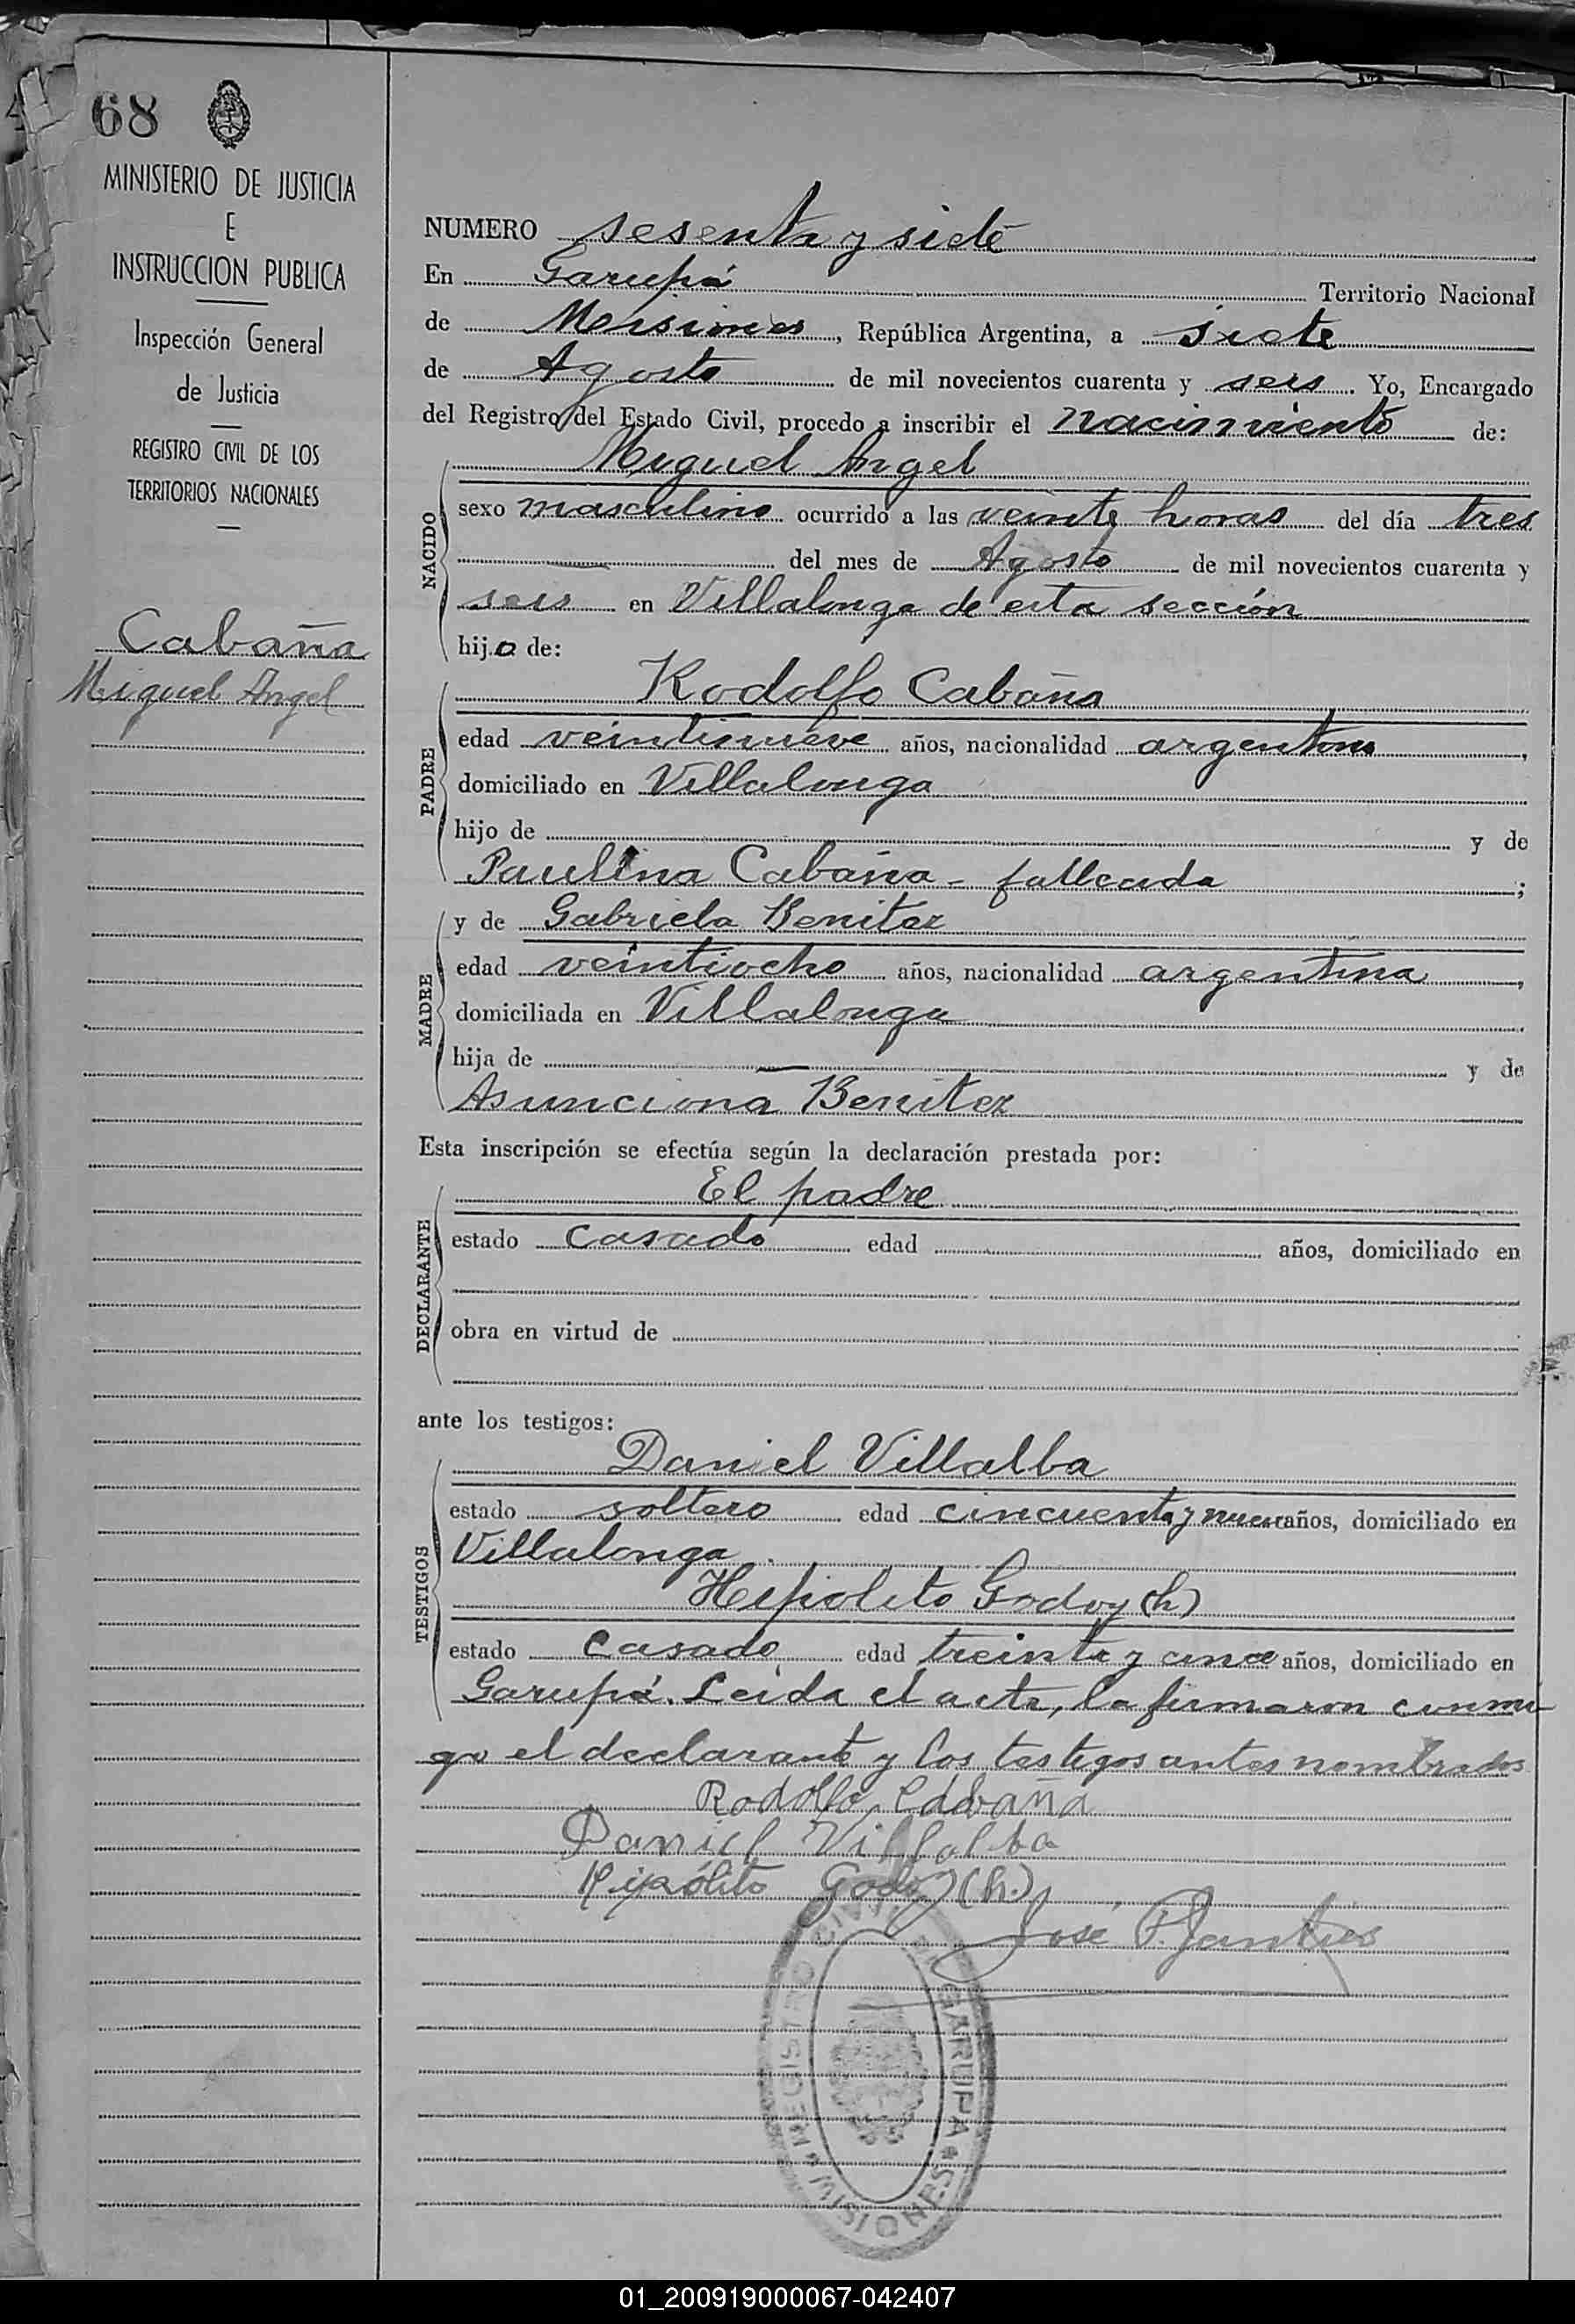 68
MINISTERIO DE JUSTICIA
E
INSTRUCCION PUBLICA
Inspección General
de Justicia
REGISTRO CIVIL DE LOS
TERRITORIOS NACIONALES
Cabaña
Miguel Angel
NUMERO sesenta y siete
En Garupá Territorio Nacional
de Misiones, República Argentina, a siete
de Agosto de mil novecientos cuarenta y seis. Yo, Encargado
del Registro del Estado Civil, procedo a inscribir el nacimiento de:
Miguel Angel
NACIDO
sexo masculino ocurrido a las veinte horas del día tres
del mes de Agosto de mil novecientos cuarenta y
seis en Villalonga de esta sección
hijo de:
Rodolfo Cabaña
PADRE
edad veintinueve años, nacionalidad argentino,
domiciliado en Villalonga
hijo de y de
Paulina Cabaña - fallecida;
MADRE
y de Gabriela Benitez
edad veintiocho años, nacionalidad argentina,
domiciliada en Villalonga
hija de — y de
Asunciona Benitez
Esta inscripción se efectúa según la declaración prestada por:
El padre
DECLARANTE
estado casado edad años, domiciliado en
obra en virtud de
ante los testigos:
Daniel Villalba
TESTIGOS
estado soltero edad cincuenta y nueve años, domiciliado en
Villalonga.
Hipolito Godoy (h)
estado casado edad treinta y cinco años, domiciliado en
Garupá. Leida el acta, la firmaron conmi-
go el declarante y los testigos antes nombrados
Rodolfo Cabaña
Daniel Villalba
Hipólito Godoy (h.)
José P.
REGISTRO CIVIL DE GARUPA * MISIONES *
01_200919000067-042407